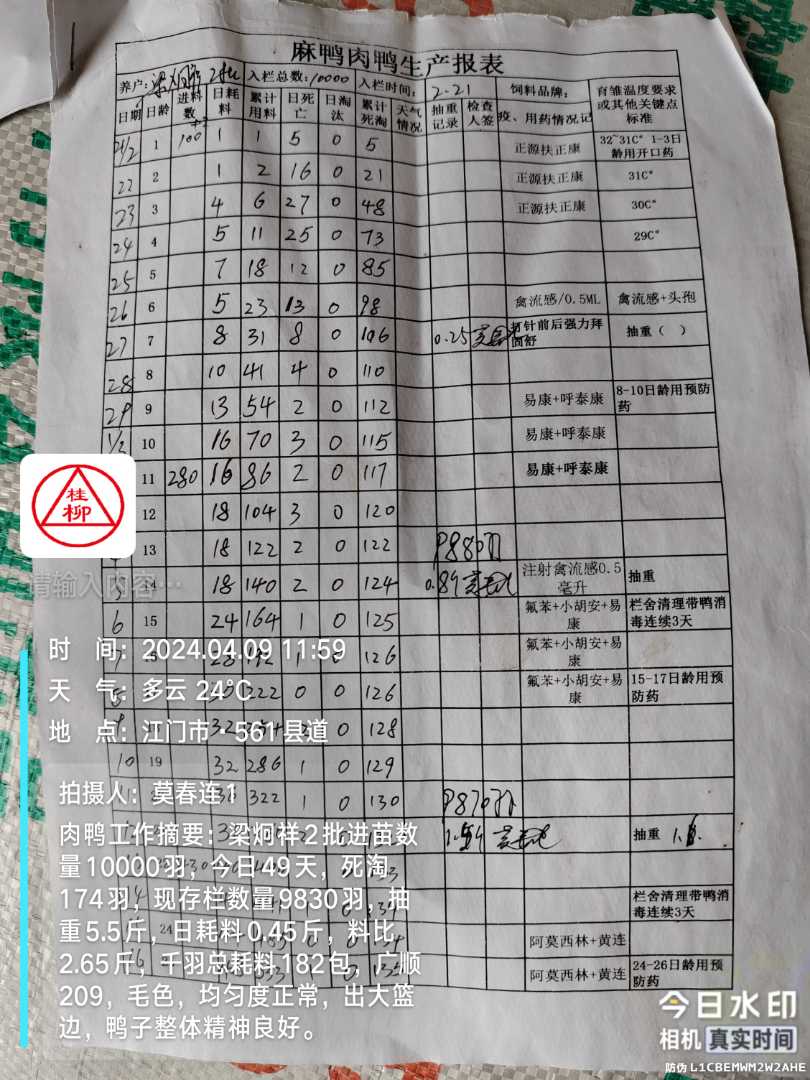 麻鸭肉鸭生产报表
养户: 梁炯祥 2批 入栏总数: 10000 入栏时间: 2-21 饲料品牌: 育雏温度要求或其他关键点标准
日期 日龄 进料数 日耗料 累计用料 日死亡 日淘汰 累计死淘 天气情况 抽重记录 检查人签 疫、用药情况记
21/2 1 100 1 1 5 0 5 正源扶正康 32~31C° 1-3日龄用开口药
22 2 1 2 16 0 21 正源扶正康 31C°
23 3 4 6 27 0 48 正源扶正康 30C°
24 4 5 11 25 0 73 29C°
25 5 7 18 12 0 85
26 6 5 23 13 0 98 禽流感/0.5ML 禽流感+头孢
27 7 8 31 8 0 106 0.25 打针前后强力拜固舒 抽重( )
28 8 10 41 4 0 110
29 9 13 54 2 0 112 易康+呼泰康 8-10日龄用预防药
10 16 70 3 0 115 易康+呼泰康
11 280 16 86 2 0 117 易康+呼泰康
12 18 104 3 0 120
13 18 122 2 0 122 P880羽
5 14 18 140 2 0 124 0.89 注射禽流感0.5毫升 抽重
6 15 24 164 1 0 125 氟苯+小胡安+易康 栏舍清理带鸭消毒连续3天
28 192 1 0 126 氟苯+小胡安+易康
222 0 0 126 氟苯+小胡安+易康 15-17日龄用预防药
32 0 128
10 19 32 286 1 0 129
322 1 0 130 P870羽
抽重
栏舍清理带鸭消毒连续3天
24 阿莫西林+黄连
阿莫西林+黄连 24-26日龄用预防药
桂柳
请输入内容…
时 间: 2024.04.09 11:59
天 气: 多云 24℃
地 点: 江门市·561县道
拍摄人: 莫春连1
肉鸭工作摘要: 梁炯祥2批进苗数
量10000羽，今日49天，死淘
174羽，现存栏数量9830羽，抽
重5.5斤，日耗料0.45斤，料比
2.65斤，千羽总耗料182包，广顺
209，毛色，均匀度正常，出大篮
边，鸭子整体精神良好。
今日水印
相机 真实时间
防伪 L1CBEMWM2W2AHE